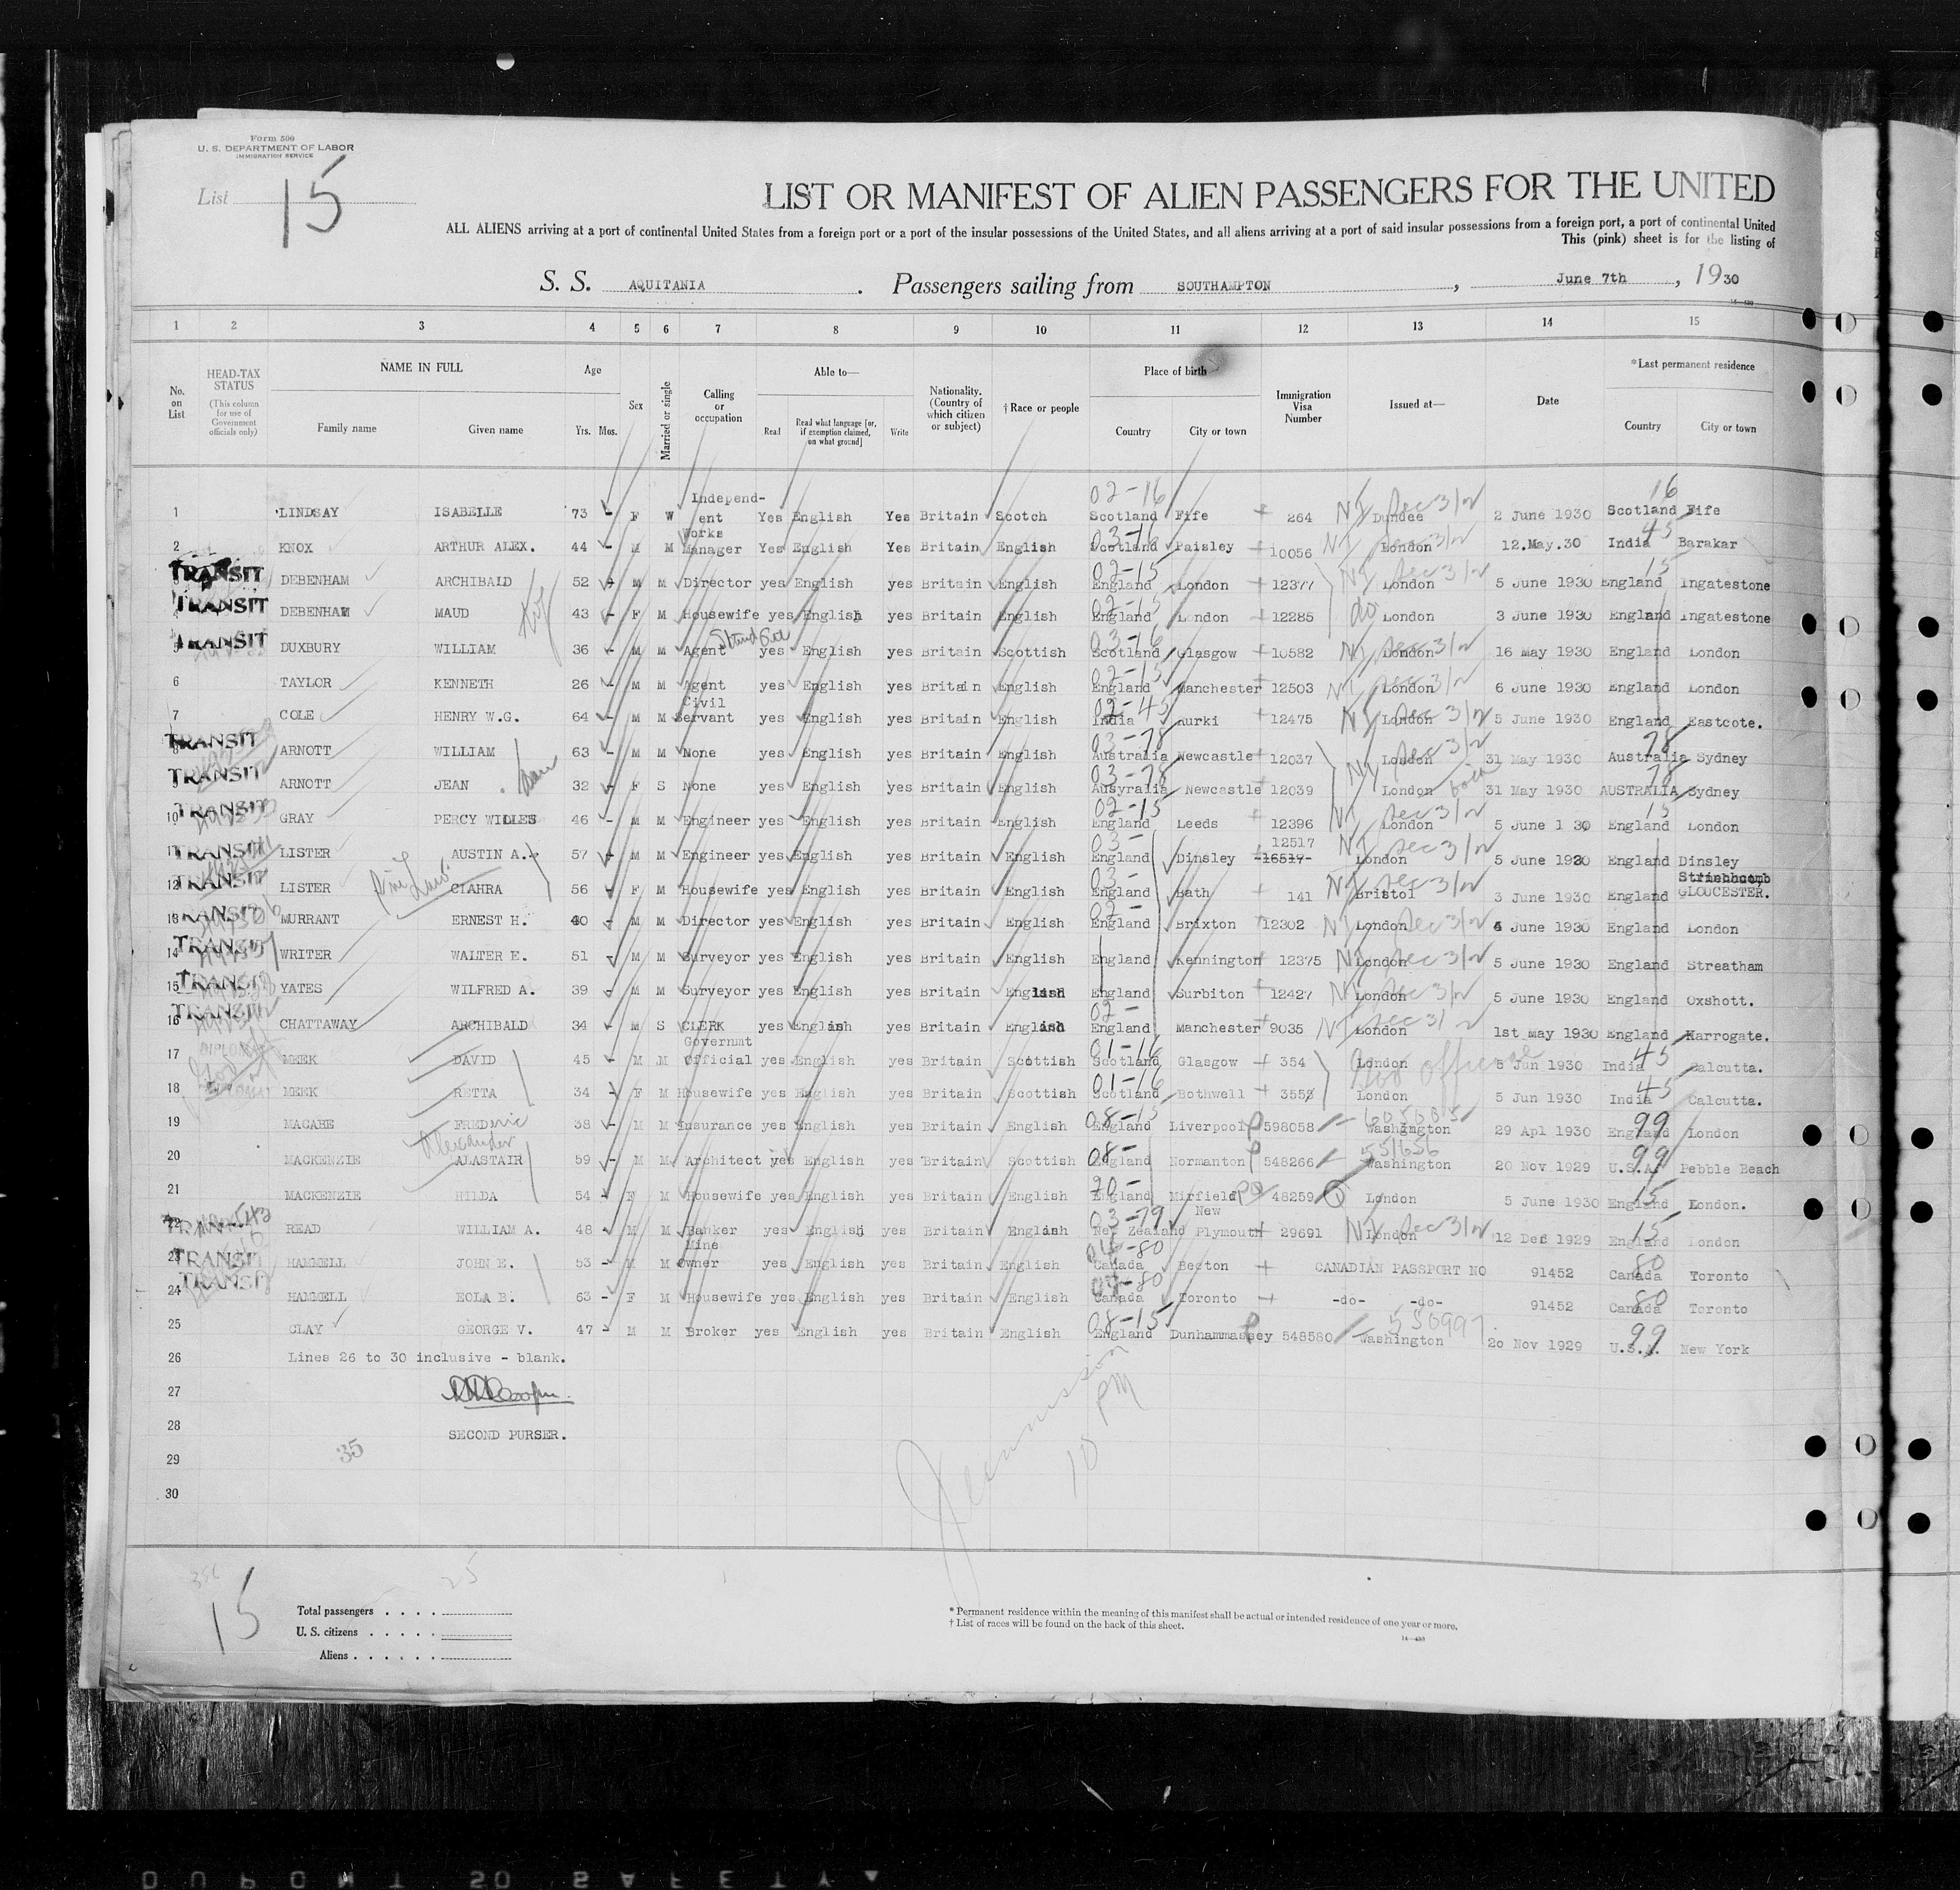 Form 500
U. S. DEPARTMENT OF LABOR
IMMIGRATION SERVICE
List 15
LIST OR MANIFEST OF ALIEN PASSENGERS FOR THE UNITED
ALL ALIENS arriving at a port of continental United States from a foreign port or a port of the insular possessions of the United States, and all aliens arriving at a port of said insular possessions from a foreign port, a port of continental United
This (pink) sheet is for the listing of
S. S. AQUITANIA . Passengers sailing from SOUTHAMPTON , June 7th , 1930
14—430
1 2 3 4 5 6 7 8 9 10 11 12 13 14 15
No. on List
HEAD-TAX STATUS (This column for use of Government officials only)
NAME IN FULL Family name Given name
Age Yrs. Mos.
Sex
Married or single
Calling or occupation
Able to— Read Read what language [or, if exemption claimed, on what ground] Write
Nationality. (Country of which citizen or subject)
† Race or people
Place of birth Country City or town
Immigration Visa Number
Issued at—
Date
*Last permanent residence Country City or town
1 LINDSAY ISABELLE 73 - F W Independ-ent Yes English Yes Britain Scotch 02-16 Scotland Fife 264 NI Sec 3/2 Dundee 2 June 1930 16 Scotland Fife
2 KNOX ARTHUR ALEX. 44 - M M Works Manager Yes English Yes Britain English 03-16 Scotland Paisley 10056 NI Sec 3/2 London 12.May.30 45 India Barakar
TRANSIT 3 DEBENHAM ARCHIBALD 52 - M M Director yes English yes Britain English 02-15 England London 12377 NI Sec 3/2 London 5 June 1930 15 England Ingatestone
TRANSIT 4 DEBENHAM MAUD 43 - F M Housewife yes English yes Britain English 02-15 England London 12285 do London 3 June 1930 England Ingatestone
TRANSIT 5 DUXBURY WILLIAM 36 - M M Agent yes English yes Britain Scottish 03-16 Scotland Glasgow 10582 NI Sec 3/2 London 16 May 1930 England London
6 TAYLOR KENNETH 26 - M M Agent yes English yes Britain English 02-15 England Manchester 12503 NI Sec 3/2 London 6 June 1930 England London
7 COLE HENRY W.G. 64 - M M Civil Servant yes English yes Britain English 02-45 India Rurki 12475 NI Sec 3/2 London 5 June 1930 England Eastcote.
TRANSIT 8 ARNOTT WILLIAM 63 - M M None yes English yes Britain English 03-78 Australia Newcastle 12037 NI Sec 3/2 London 31 May 1930 78 Australia Sydney
TRANSIT 9 ARNOTT JEAN 32 - F S None yes English yes Britain English 03-78 Ausyralia Newcastle 12039 London both 31 May 1930 78 AUSTRALIA Sydney
TRANSIT 10 GRAY PERCY WILLES 46 - M M Engineer yes English yes Britain English 02-15 England Leeds 12396 NI Sec 3/2 London 5 June 1 30 15 England London
TRANSIT 11 LISTER AUSTIN A. 57 - M M Engineer yes English yes Britain English 03- England Dinsley 12517 16517 NI Sec 3/2 London 5 June 1930 England Dinsley
TRANSIT 12 LISTER CIAHRA 56 - F M Housewife yes English yes Britain English 03- England Bath 141 NI Sec 3/2 Bristol 3 June 1930 England GLOUCESTER.
TRANSIT 13 MURRANT ERNEST H. 40 - M M Director yes English yes Britain English 02- England Brixton 12302 NI Sec 3/2 London 4 June 1930 England London
TRANSIT 14 WRITER WALTER E. 51 - M M Surveyor yes English yes Britain English England Kennington 12375 NI Sec 3/2 London 5 June 1930 England Streatham
TRANSIT 15 YATES WILFRED A. 39 - M M Surveyor yes English yes Britain English England Surbiton 12427 NI Sec 3/2 London 5 June 1930 England Oxshott.
TRANSIT 16 CHATTAWAY ARCHIBALD 34 - M S CLERK yes English yes Britain English 02- England Manchester 9035 NI Sec 3/2 London 1st May 1930 England Harrogate.
17 MEEK DAVID 45 - M M Governmt Official yes English yes Britain Scottish 01-16 Scotland Glasgow 354 London 5 Jun 1930 45 India Calcutta.
18 MEEK RETTA 34 - F M Housewife yes English yes Britain Scottish 01-16 Scotland Bothwell 3555 London 5 Jun 1930 45 India Calcutta.
19 MACABE FREDeric 38 - M M Insurance yes English yes Britain English 08-15 England Liverpool 598058 Washington 29 Apl 1930 99 England London
20 MACKENZIE Alexander ALASTAIR 59 - M M Architect yes English yes Britain Scottish 08- England Normanton 548266 551656 Washington 20 Nov 1929 99 U.S.A. Pebble Beach
21 MACKENZIE HILDA 54 - F M Housewife yes English yes Britain English 20- England Mirfield 48259 London 5 June 1930 15 England London.
22 READ WILLIAM A. 48 - M M Banker yes English yes Britain English 03-79 New Zealand New Plymouth 29691 NI Sec 3/2 London 12 Dec 1929 15 England London
TRANSIT 23 HAMMELL JOHN E. 53 - M M Mine Owner yes English yes Britain English Canada Beeton CANADIAN PASSPORT NO 91452 80 Canada Toronto
TRANSIT 24 HAMMELL EOLA B. 63 - F M Housewife yes English yes Britain English Canada Toronto -do- -do- 91452 80 Canada Toronto
25 CLAY GEORGE V. 47 - M M Broker yes English yes Britain English 08-15 England Dunhammassey 548580 Washington 20 Nov 1929 99 U.S.A. New York
26 Lines 26 to 30 inclusive - blank.
27
28 SECOND PURSER.
29 35
30
10 PM
15
25
Total passengers . . . .
U. S. citizens . . . . .
Aliens . . . . . .
* Permanent residence within the meaning of this manifest shall be actual or intended residence of one year or more.
† List of races will be found on the back of this sheet.
14—430
DUPONT 50 SAFETY